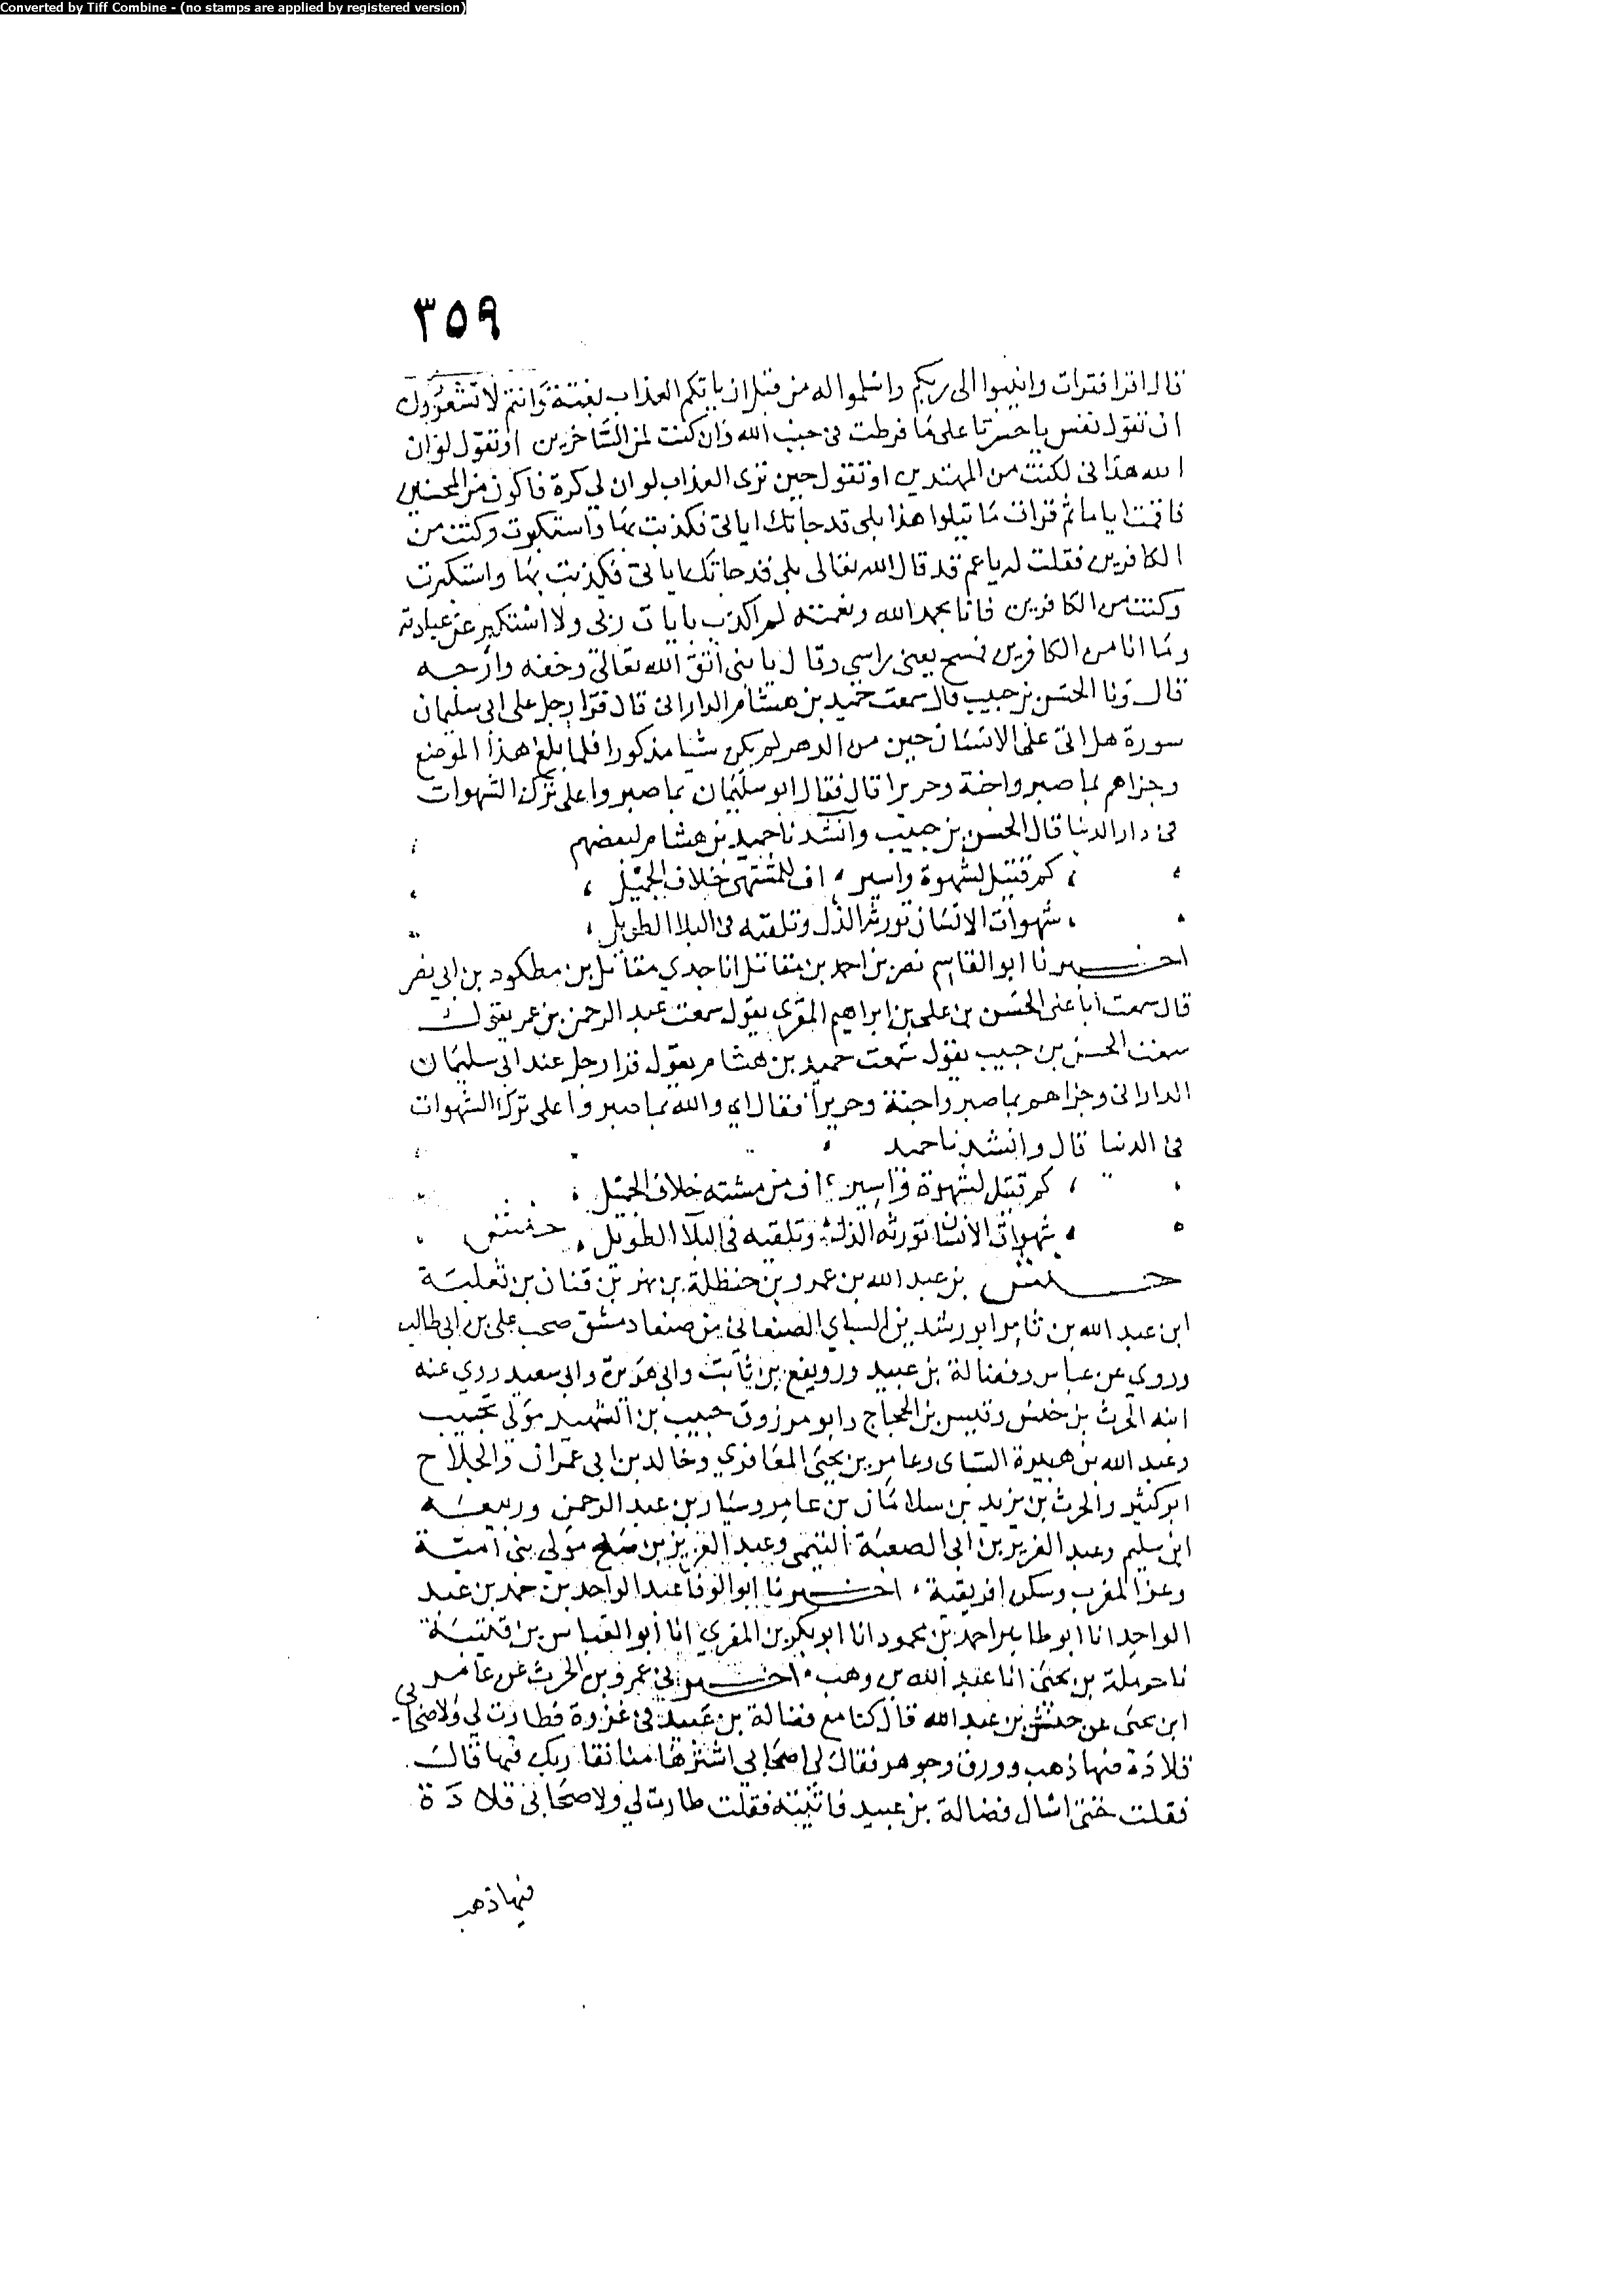 Converted by Tiff Combine - (no stamps are applied by registered version)
٣٥٩
قال اقرا فقرات وانيبوا الى ربكم واسلموا له من قبل ان ياتكم العذاب بغتة وانتم لا تشعرون
ان تقول نفس ياحسرتا على ما فرطت فى جنب الله وان كنت لمن الساخرين او تقول لو ان
الله هدانى لكنت من المهتدين او تقول حين ترى العذاب لو ان لي كرة فاكون من المحسنين
فاقمت اياما ثم قرات ما تيلوا هذا بلى قد جاتك اياتى فكذبت بها واستكبرت وكنت من
الكافرين فقلت له ياعم قد قال الله تعالى بلى قد جاتك اياتى فكذبت بها واستكبرت
وكنت من الكافرين فانا بحمد الله ونعمته لم اكذب بايات ربى ولا استكبر عن عبادته
وما انا من الكافرين فمسح يعنى راسي وقال يا بنى اتق الله تعالى وخفه وارجه
قال ونا الحسن بن حبيب قال سمعت حميد بن هشام الدارانى قال قرا رجل على ابى سليمان
سورة هل اتى على الانسان حين من الدهر لم يكن شيا مذكورا فلما بلغ هذا الموضع
وجزاهم بما صبروا جنة وحريرا قال فقال ابو سليمان بما صبروا على ترك الشهوات
فى دار الدنيا قال الحسن بن حبيب وانشدنا حميد بن هشام لبعضهم
كم قتيل لشهوة واسير ، اف للمشتهى خلاف الجميل ،
شهوات الانسان تورثه الذل وتلقيه فى البلا الطويل ،
اخبرنا ابو القاسم نصر بن احمد بن مقاتل انا جدي مقاتل بن مطكود بن ابي نصر
قال سمعت ابا على الحسن بن على بن ابراهيم المقري يقول سمعت عبد الرحمن بن عمر يقول
سمعت الحسن بن حبيب يقول سمعت حميد بن هشام يقول قرا رجل عند ابى سليمان
الدارانى وجزاهم بما صبروا جنة وحريرا فقال اي والله بما صبروا على ترك الشهوات
فى الدنيا قال وانشدنا حميد
كم قتيل لشهوة واسير ، اف من مشته خلاف الجميل
شهوات الانسان تورثه الذل وتلقيه فى البلا الطويل ، حنش
حنش بن عبد الله بن عمرو بن حنظلة بن نهد بن قنان بن ثعلبة
ابن عبد الله بن ثامر ابو رشد بن السباي الصنعاني من صنعا دمشق صحب على بن ابى طالب
وروي عن عباس وفضالة بن عبيد ورويفع بن ثابت وابى هريرة وابى سعيد روي عنه
ابنه الحرث بن حنش وقيس بن الحجاج وابو مرزوق حبيب بن الشهيد مولي تجيب
وعبد الله بن هبيرة السباى وعامر بن يحيى المعافري وخالد بن ابى عمران والجلاح
ابو كثير والحرث بن يزيد بن سلامان بن عامر وسيار بن عبد الرحمن وربيعه
ابن سليم وعبد العزيز بن ابى الصعبة التيمى وعبد العزيز بن صلح مولي بنى امية
وغزا المغرب وسكن افريقية ، اخبرنا ابو الوفا عبد الواحد بن حمد بن عبد
الواحد انا ابو طاهر احمد بن محمود انا ابو بكر بن المقري انا ابو العباس بن قتيبة
نا حرملة بن يحيى انا عبد الله بن وهب اخبرني عمرو بن الحرث عن عامر
ابن يحيى عن حنش بن عبد الله قال كنا مع فضالة بن عبيد في غزوة فطارت لي ولاصحابي
قلادة فيها ذهب وورق وجوهر فقال لى اصحابي اشترها منا نقاربك فيها قال
فقلت حتى اسال فضالة بن عبيد فاتيته فقلت طارت لي ولاصحابى قلادة
فيها ذهب